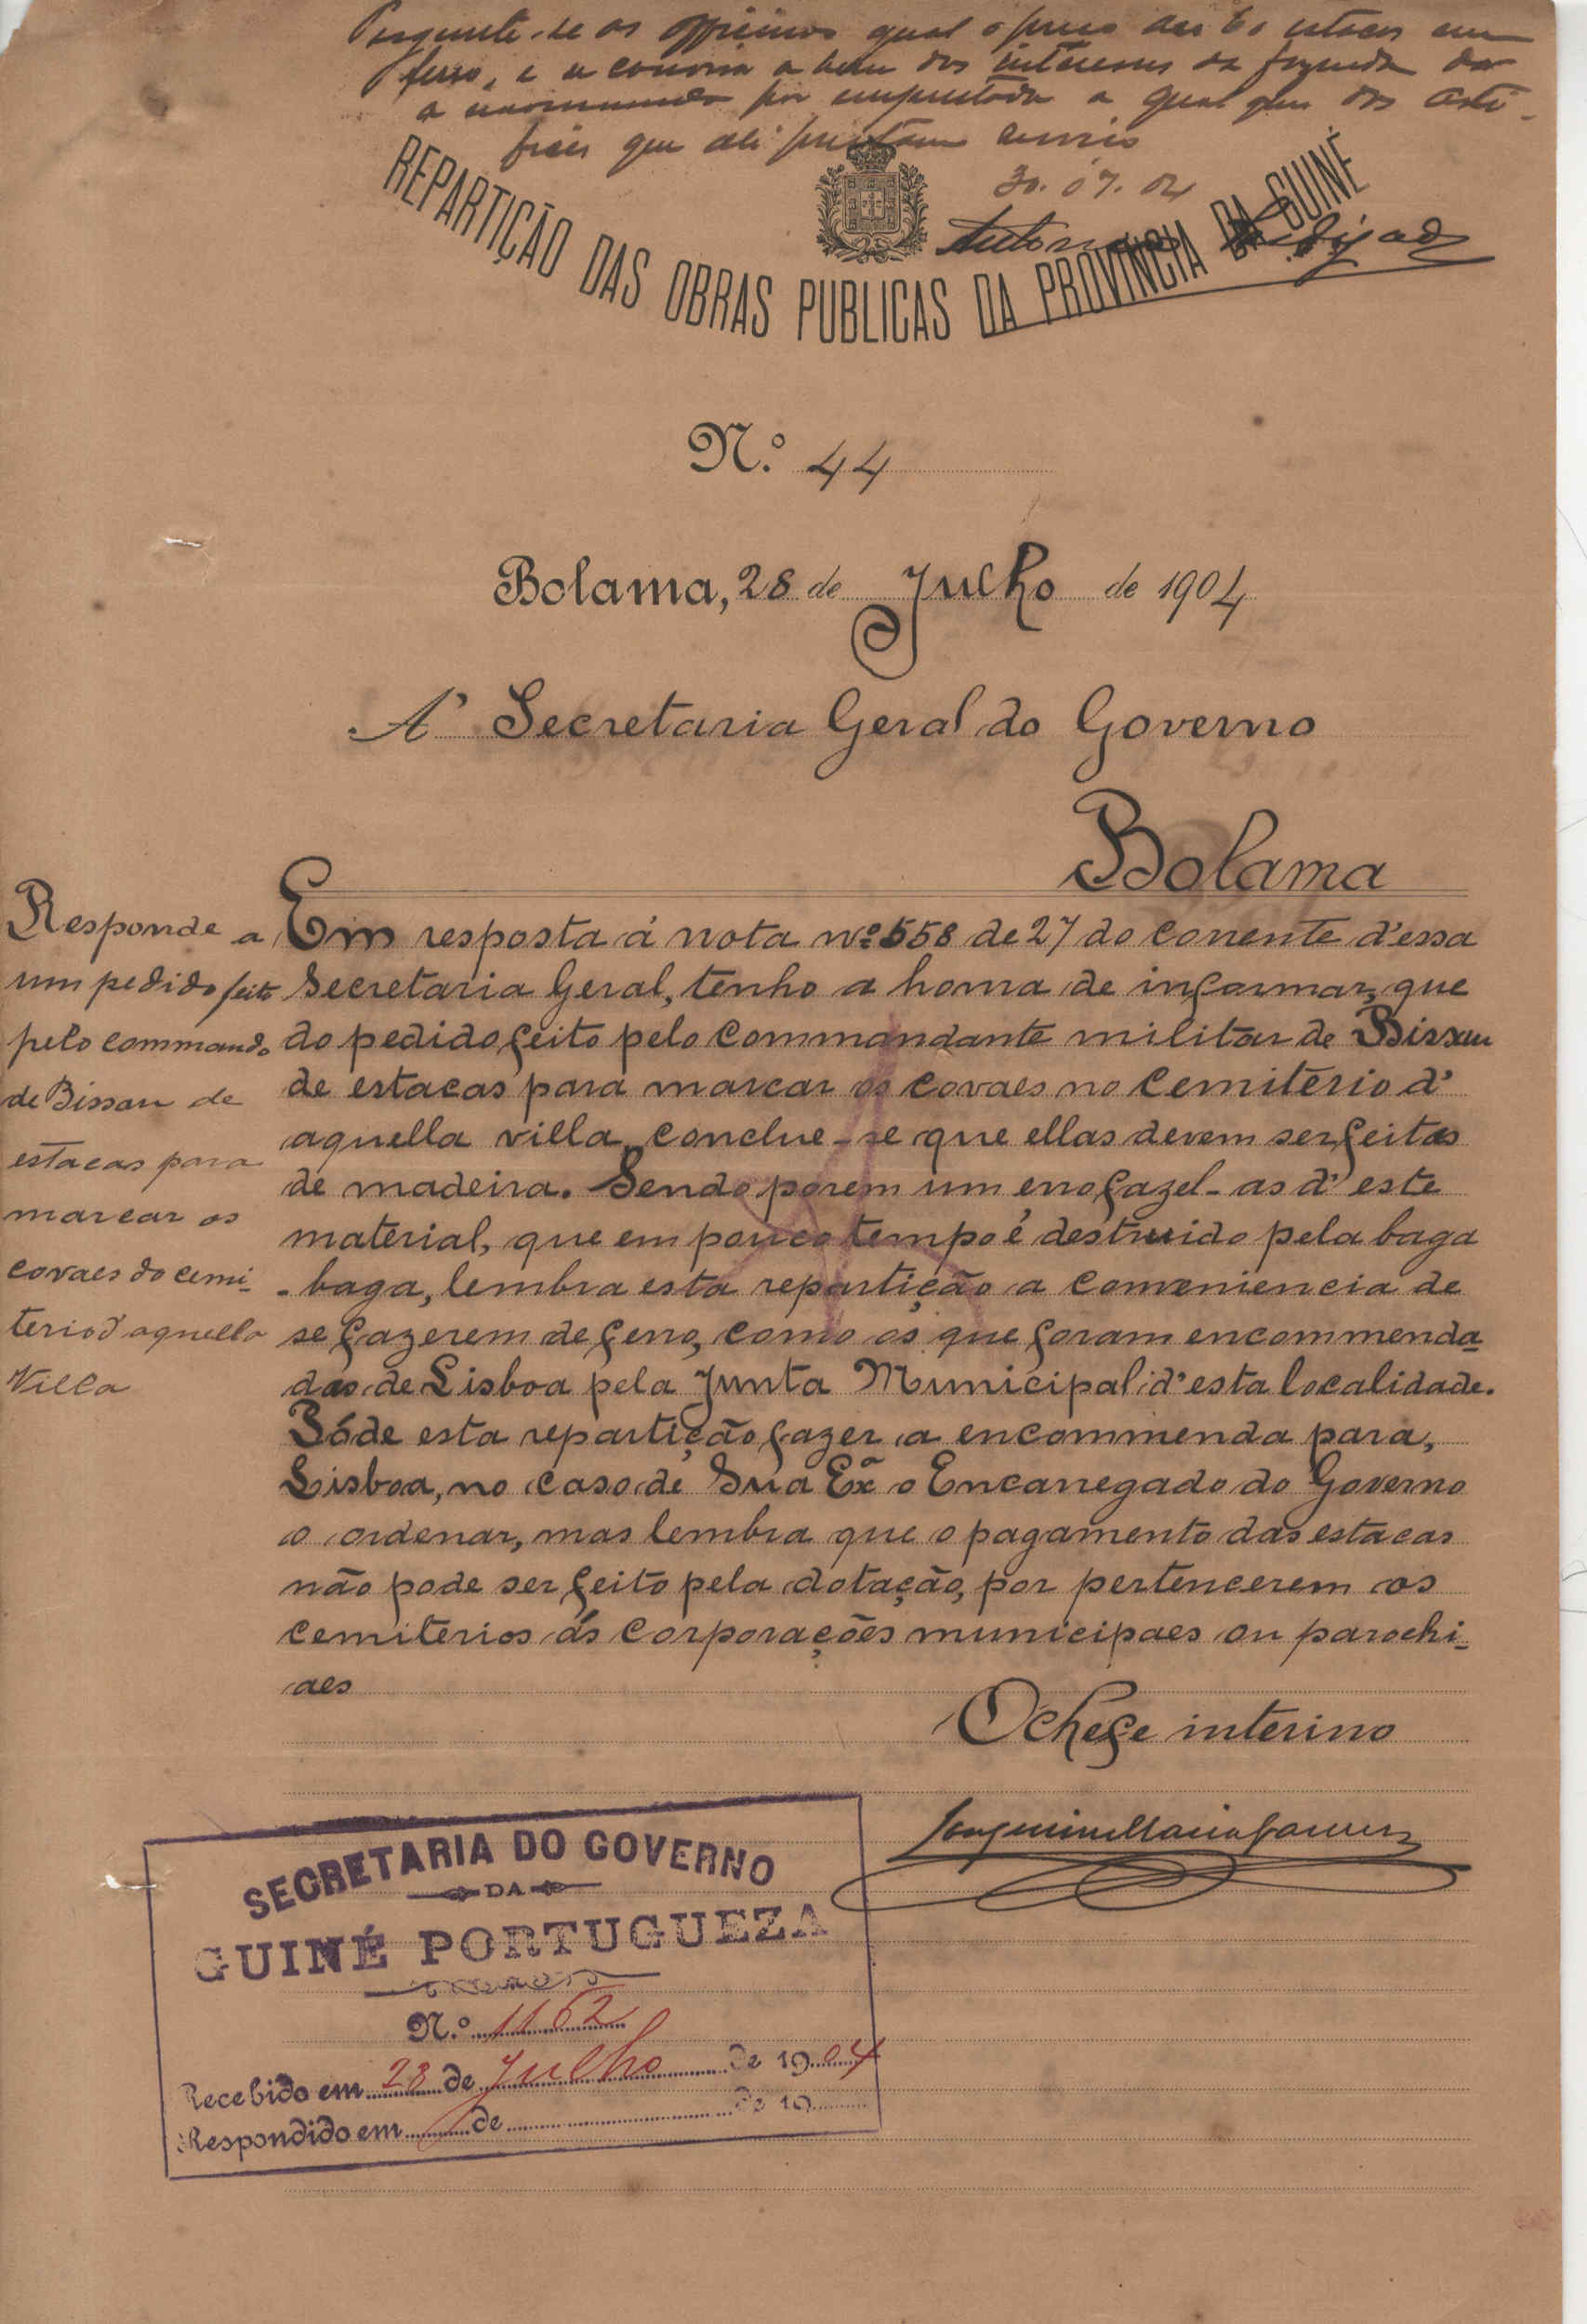 Pergunte-se as officinas qual o preço das 60 estacas em
ferro, e se convirá a bem dos interesses da fazenda dar
a encommenda por empreitada a qualquer dos arti-
fices que ali prestam serviço
30.07.04
REPARTIÇÃO DAS OBRAS PUBLICAS DA PROVINCIA DA GUINÉ
N.º 44
Bolama, 28 de Julho de 1904
A' Secretaria Geral do Governo
Bolama
Responde a
um pedido feito
pelo commando
de Bissau de
estacas para
marcar os
covaes do cemi-
terio d'aquella
Villa
Em resposta á nota nº 558 de 27 do corrente d'essa
Secretaria Geral, tenho a honra de informar, que
do pedido feito pelo commandante militar de Bissau
de estacas para marcar os covaes no cemiterio d'
aquella villa, conclue-se que ellas devem ser feitas
de madeira. Sendo porem um erro fazel-as d'este
material, que em pouco tempo é destruido pela baga
-baga, lembra esta repartição a conveniencia de
se fazerem de ferro, como as que foram encommenda-
das de Lisboa pela Junta Municipal d'esta localidade.
Póde esta repartição fazer a encommenda para,
Lisboa, no caso de Sua Exª o Encarregado do Governo
o ordenar, mas lembra que o pagamento das estacas
não pode ser feito pela dotação, por pertencerem os
cemiterios ás corporações municipaes ou parochi-
aes
O chefe interino
SECRETARIA DO GOVERNO
DA
GUINÉ PORTUGUEZA
N.º 1162
Recebido em 28 de Julho de 1904
Respondido em de de 19